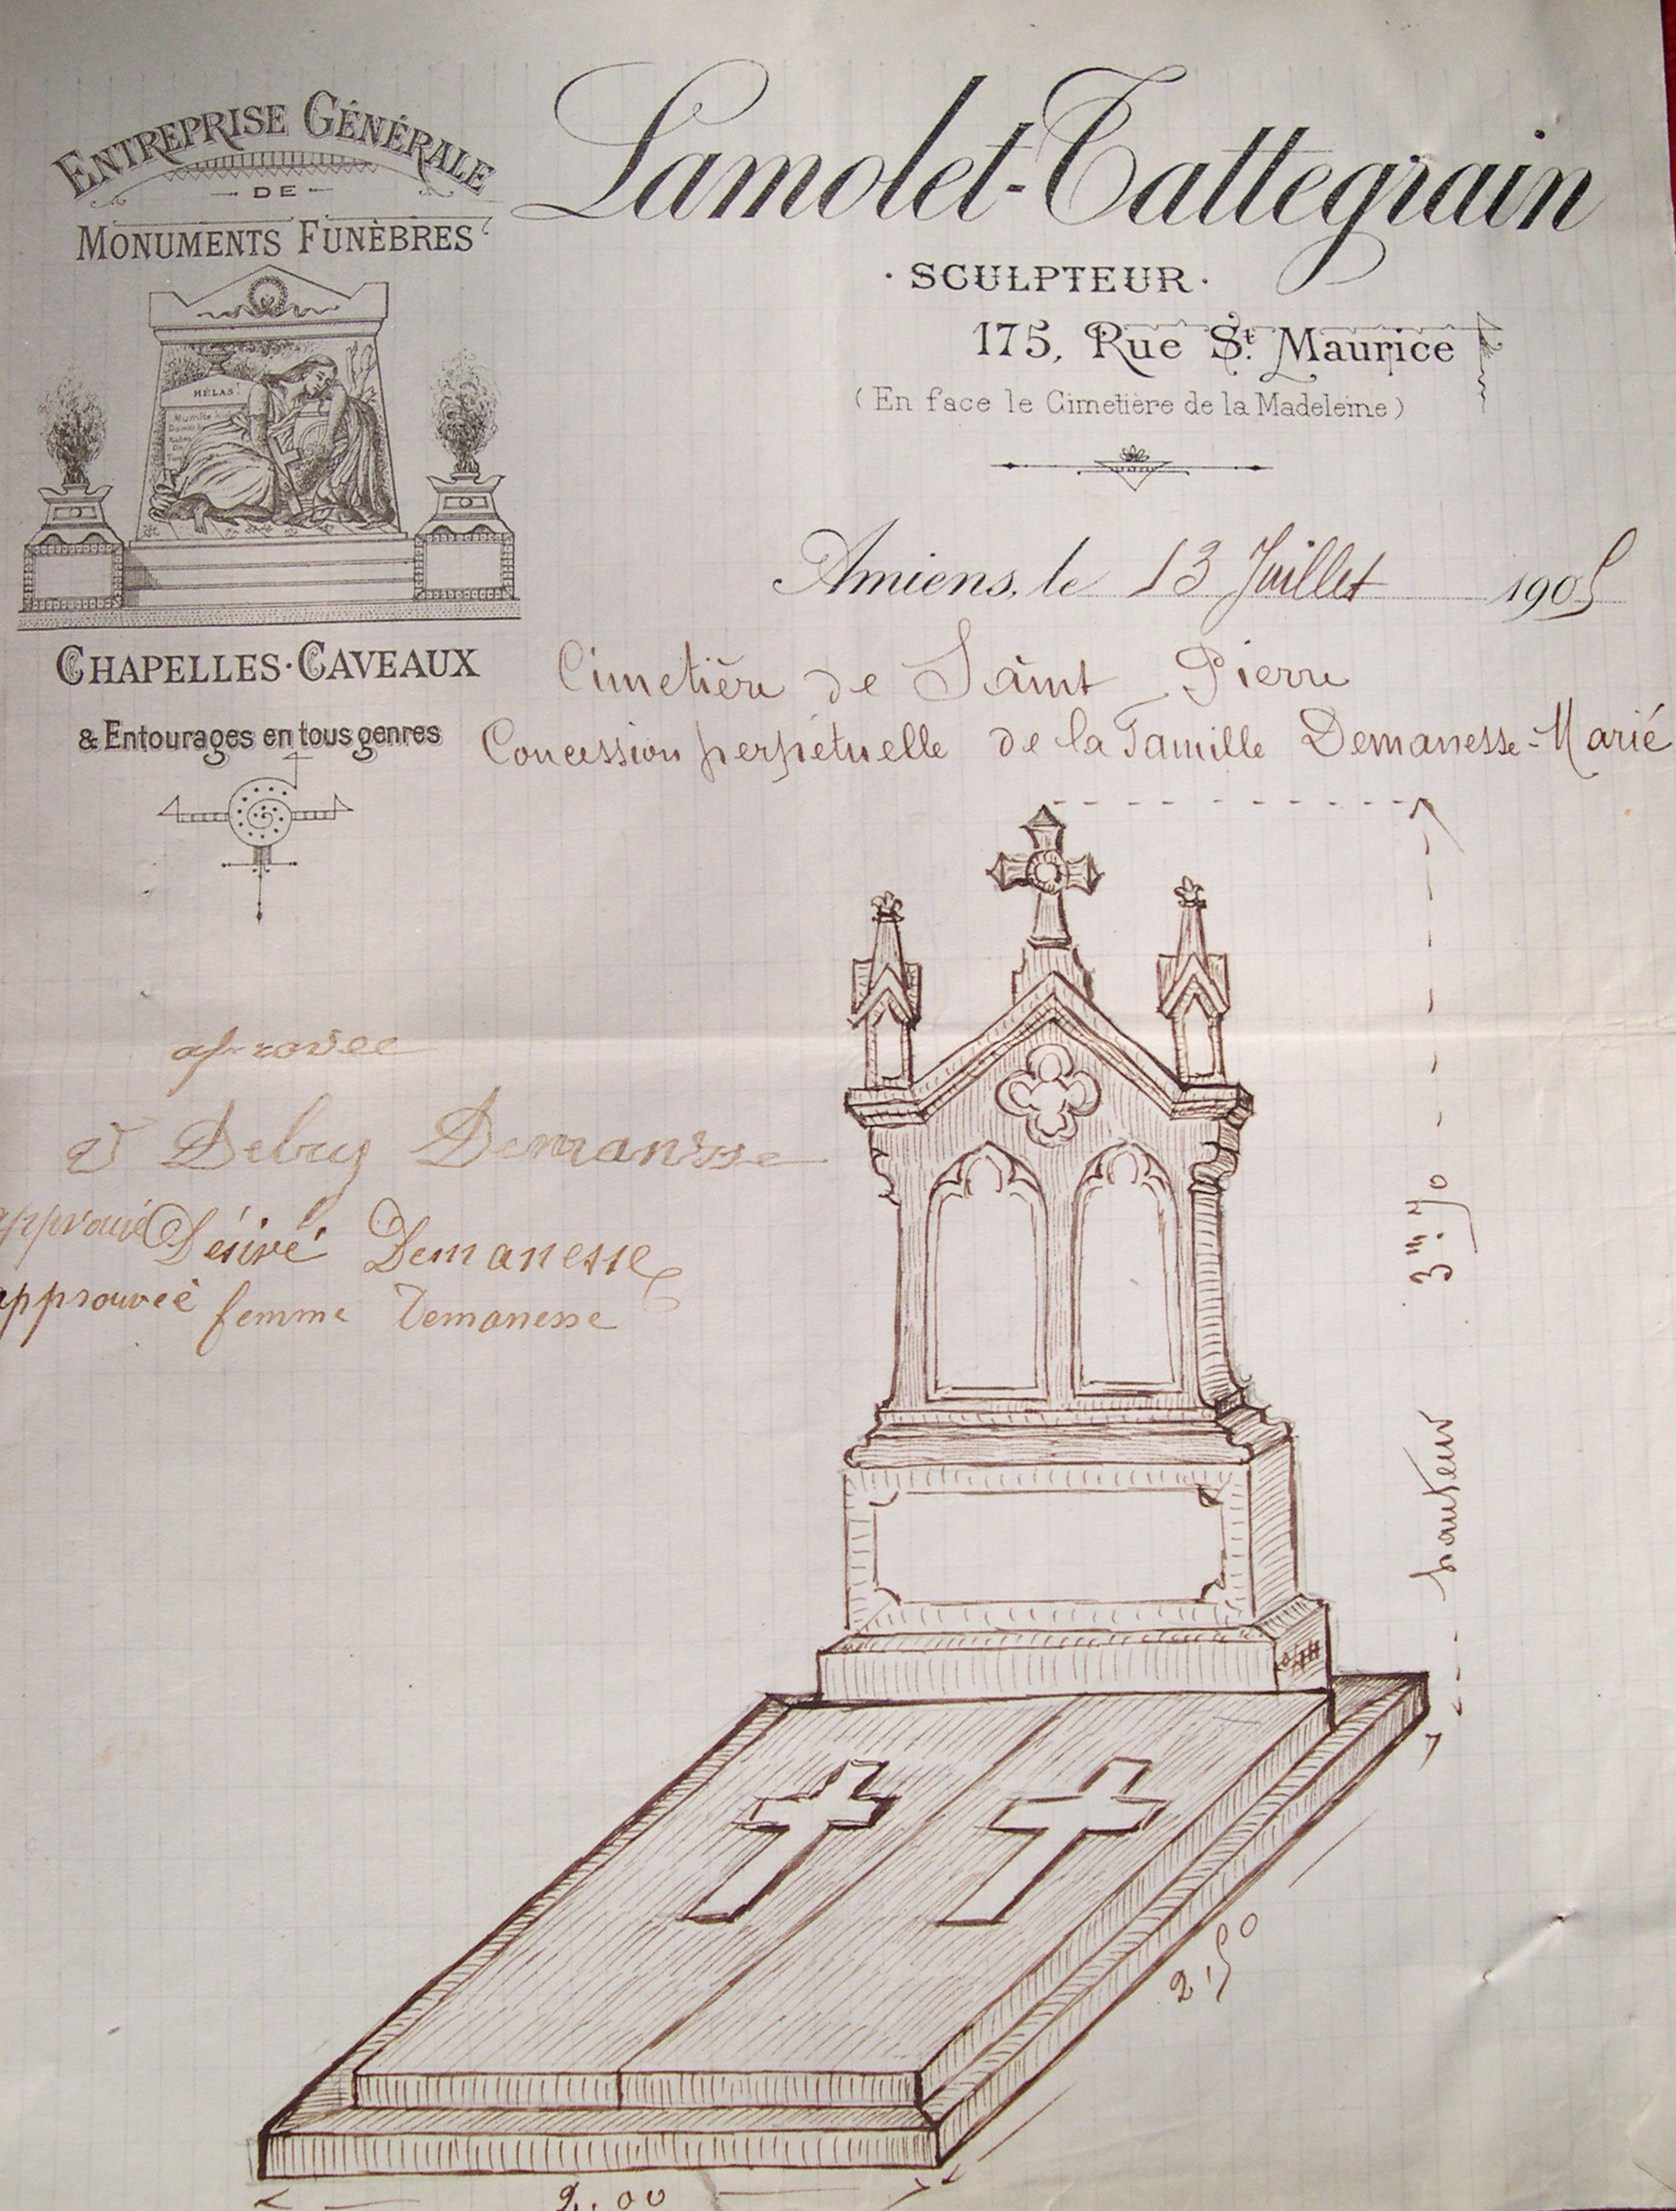 ENTREPRISE GÉNÉRALE
DE
MONUMENTS FUNÈBRES
HÉLAS!
CHAPELLES·CAVEAUX
& Entourages en tous genres
Lamolet-Tattegrain
· SCULPTEUR ·
175, Rue St. Maurice
(En face le Cimetière de la Madeleine)
Amiens, le 13 Juillet 1905
Cimetière de Saint Pierre
Concession perpétuelle de la Famille Demanesse-Marié
aprovee
V Debry Demanesse
approuvé Désiré Demanesse
approuveé femme Demanesse
3m.70
hauteur
2,50
2.00